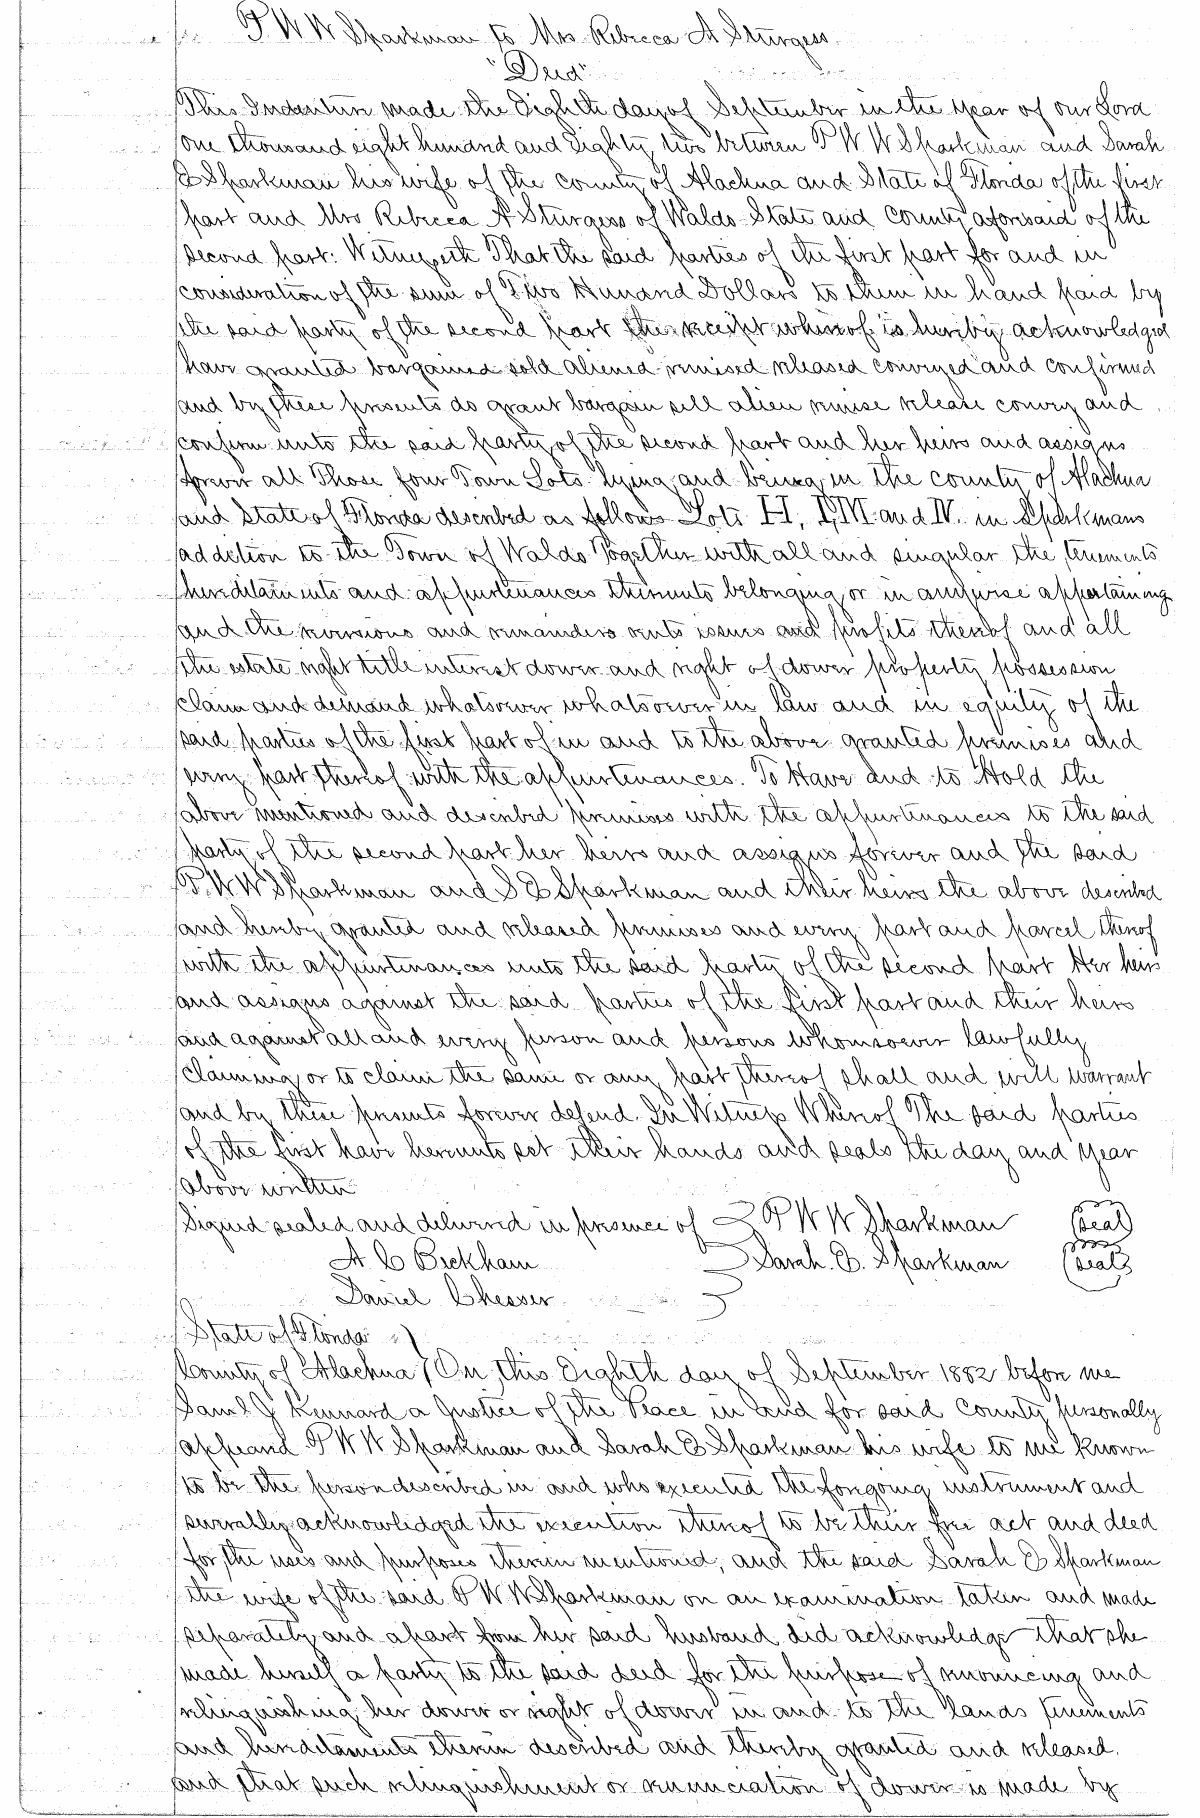 P W W Sparkman to Mrs Rebecca A Sturgess
"Deed"
This Indenture made the Eighth day of September in the year of our Lord
one thousand eight hundred and Eighty two between P W W Sparkman and Sarah
E Sparkman his wife of the county of Alachua and State of Florida of the first
part and Mrs Rebecca A Sturgess of Waldo State and County aforesaid of the
second part: Witnesseth That the said parties of the first part for and in
consideration of the sum of Two Hundred Dollars to them in hand paid by
the said party of the second part the receipt whereof is hereby acknowledged
have granted bargained sold aliened remised released conveyed and confirmed
and by these presents do grant bargain sell alien remise release convey and
confirm unto the said party of the second part and her heirs and assigns
forever all Those four Town Lots lying and being in the county of Alachua
and State of Florida described as follows Lots H, I, M and N. in Sparkmans
addition to the Town of Waldo Together with all and singular the tenements
hereditaments and appurtenances thereunto belonging or in anywise appertaining
and the reversions and remainders rents issues and profits thereof and all
the estate right title interest dower and right of dower property possession
claim and demand whatsoever whatsoever in law and in equity of the
said parties of the first part of in and to the above granted premises and
every part thereof with the appurtenances. To Have and to Hold the
above mentioned and described premises with the appurtenances to the said
party of the second part her heirs and assigns forever and the said
P. W W Sparkman and S E Sparkman and their heirs the above described
and hereby granted and released premises and every part and parcel thereof
with the appurtenances unto the said party of the second part Her heirs
and assigns against the said parties of the first part and their heirs
and against all and every person and persons whomsoever lawfully
claiming or to claim the same or any part thereof shall and will warrant
and by these presents forever defend. In Witness Whereof The said parties
of the first have hereunto set their hands and seals the day and year
above written
Signed sealed and delivered in presence of P W W Sparkman (seal)
A C Beckham Sarah. E. Sparkman (seal)
Daniel Chesser
State of Florida
County of Alachua } On this Eighth day of September 1882 before me
Saml J Kennard a Justice of the Peace in and for said County personally
appeared P W W Sparkman and Sarah E Sparkman his wife to me known
to be the person described in and who executed the foregoing instrument and
severally acknowledged the execution thereof to be their free act and deed
for the uses and purposes therein mentioned, and the said Sarah E Sparkman
the wife of the said P W W Sparkman on an examination taken and made
separately and apart from her said husband did acknowledge that she
made herself a party to the said deed for the purpose of renouncing and
relinquishing her dower or right of dower in and to the lands tenements
and hereditaments therein described and thereby granted and released.
and that such relinquishment or renunciation of dower is made by